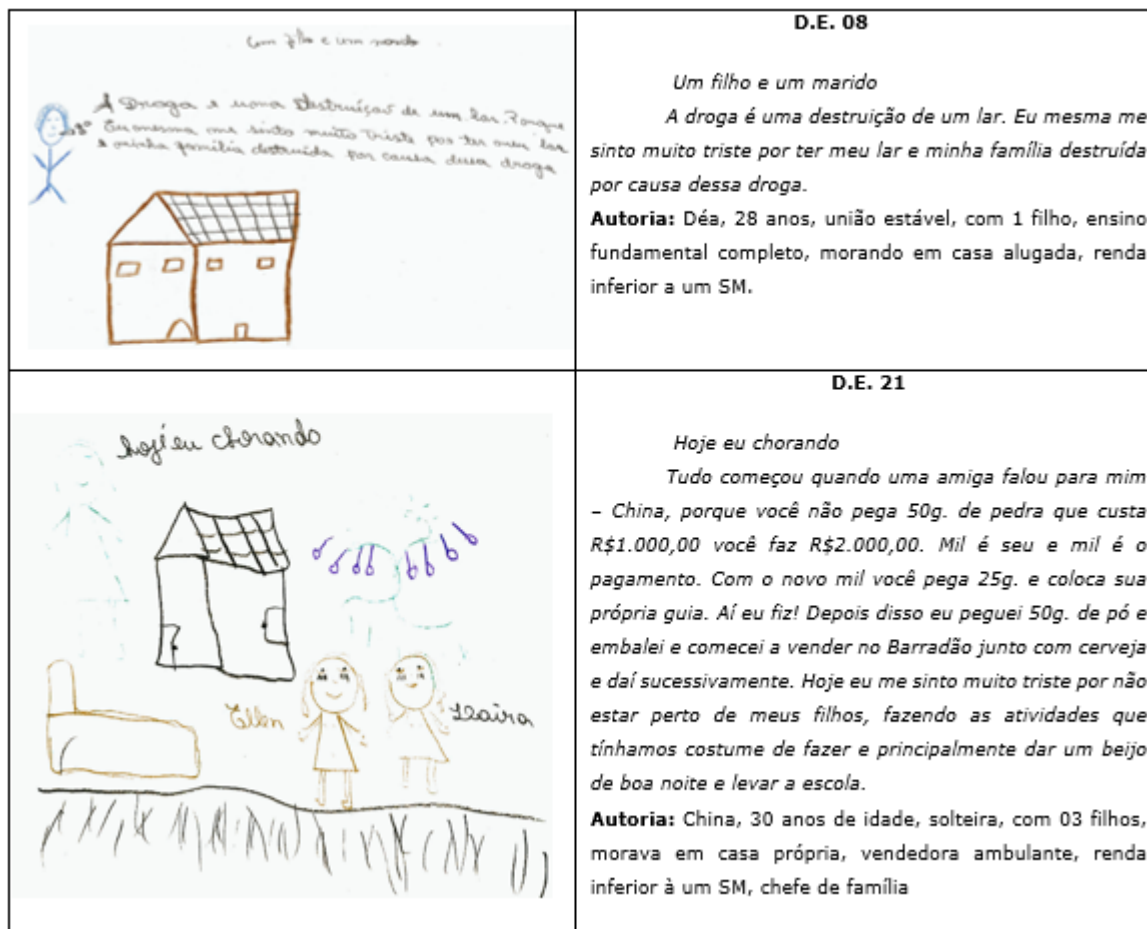 Um filho e um marido
A Droga e uma destruiçaõ de um lar. Porque
Eu mesma me sinto muito triste por ter meu lar
e minha família destruida por causa dessa droga
D.E. 08
Um filho e um marido
A droga é uma destruição de um lar. Eu mesma me
sinto muito triste por ter meu lar e minha família destruída
por causa dessa droga.
Autoria: Déa, 28 anos, união estável, com 1 filho, ensino
fundamental completo, morando em casa alugada, renda
inferior a um SM.
hoje eu chorando
Ellen
D.E. 21
Hoje eu chorando
Tudo começou quando uma amiga falou para mim
– China, porque você não pega 50g. de pedra que custa
R$1.000,00 você faz R$2.000,00. Mil é seu e mil é o
pagamento. Com o novo mil você pega 25g. e coloca sua
própria guia. Aí eu fiz! Depois disso eu peguei 50g. de pó e
embalei e comecei a vender no Barradão junto com cerveja
e daí sucessivamente. Hoje eu me sinto muito triste por não
estar perto de meus filhos, fazendo as atividades que
tínhamos costume de fazer e principalmente dar um beijo
de boa noite e levar a escola.
Autoria: China, 30 anos de idade, solteira, com 03 filhos,
morava em casa própria, vendedora ambulante, renda
inferior à um SM, chefe de família